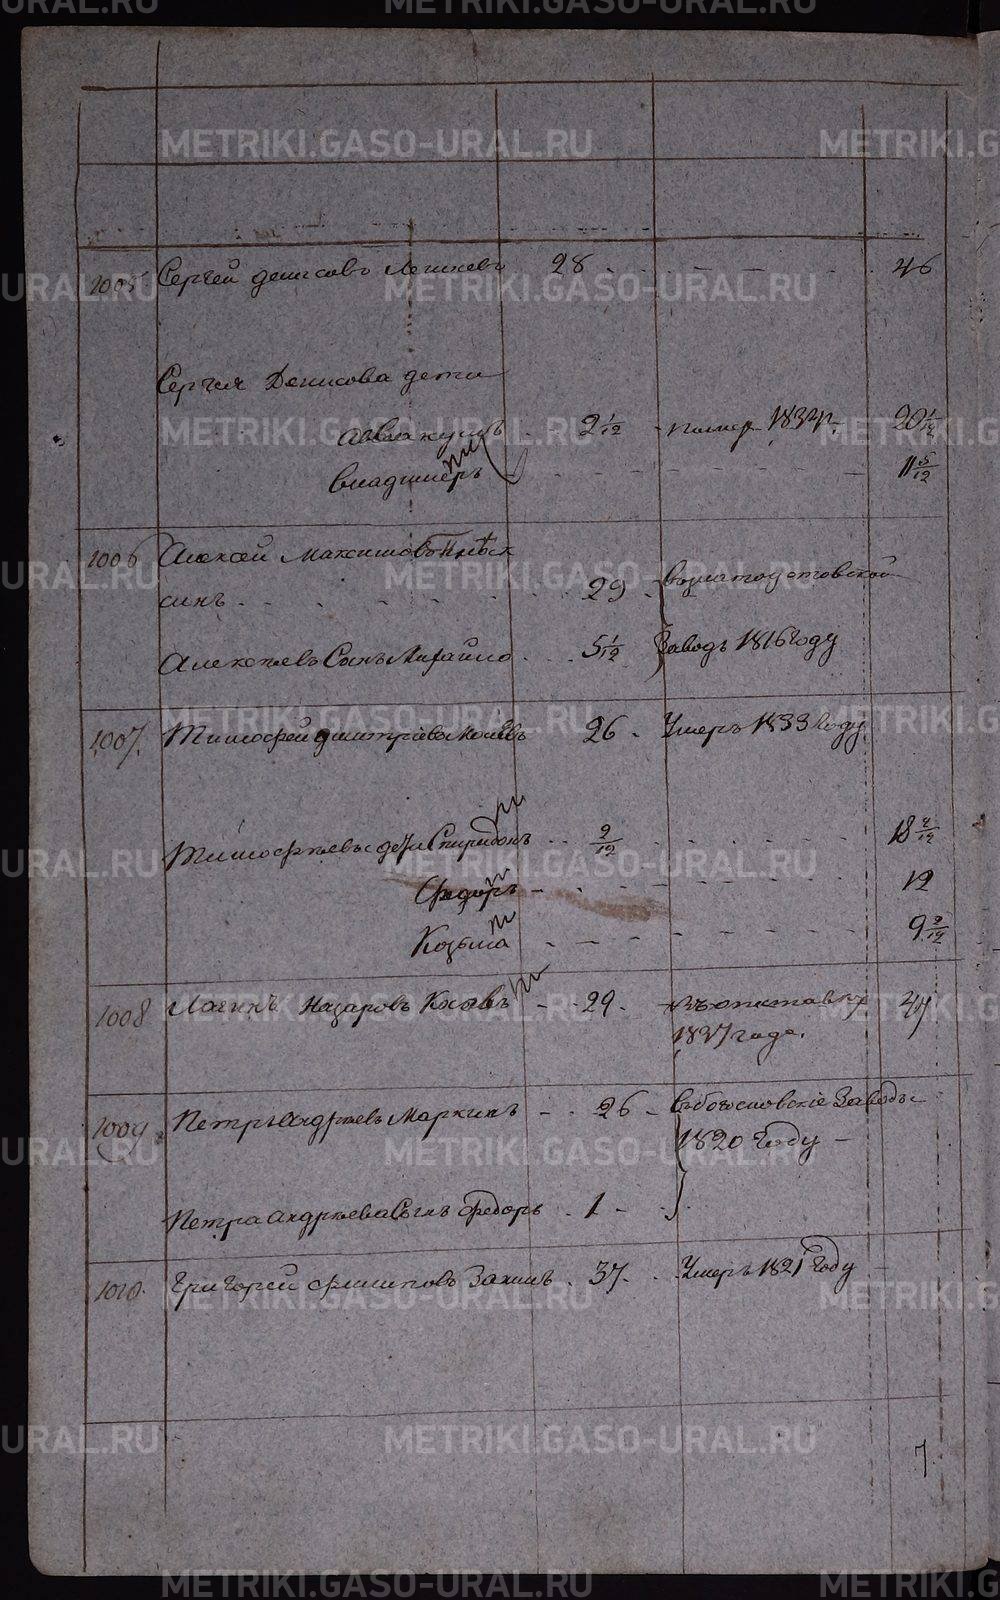 METRIKI.GASO-URAL.RU
1005 Сергей денисовъ 28 46
Сергея Денисова дети
Аввакумъ 2 1/12 помер 1832 г. 20 1/12
Владимеръ 11 5/12
1006 Алексей Максимовъ
сынъ 29
Алексеевъ Сынъ Михайло 5 1/12 Заводъ 1816 Году
1007. Тимофей дмитриевъ 26 Умеръ 1833 Году
Тимофеевы дети Спиридонъ 9/12 18 4/12
Федоръ 12
Козьма 9 9/12
1008 Логинъ Назаровъ 29 въ отставку 47
1837 года.
1009 Петръ андреевъ Маркинъ 26 въ богословские Заводы
1820 Году
Петра андреева Сынъ Федоръ 1
1010. Григорей Филиповъ 37. Умеръ 1821 Году
7.